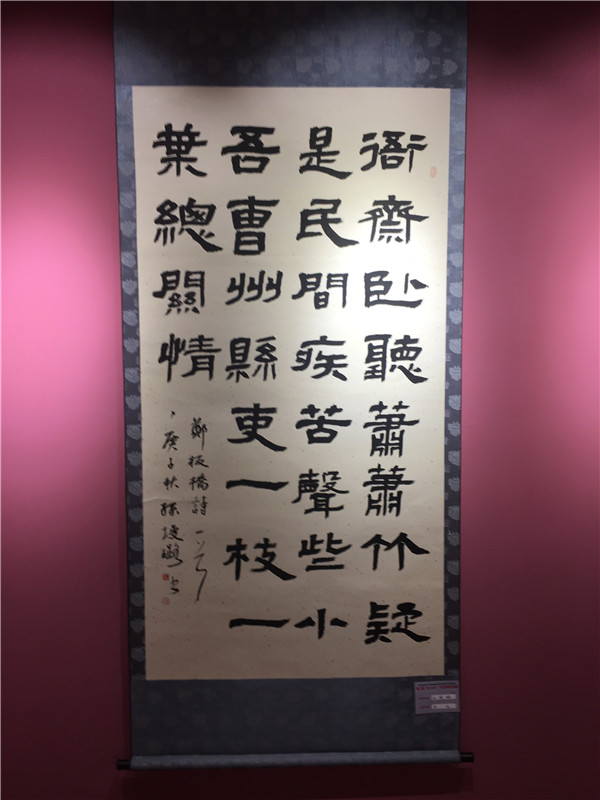 衙齋卧聽蕭蕭竹疑
是民間疾苦聲些小
吾曹州縣吏一枝一
葉總關情
鄭板橋詩一首
庚子秋孫